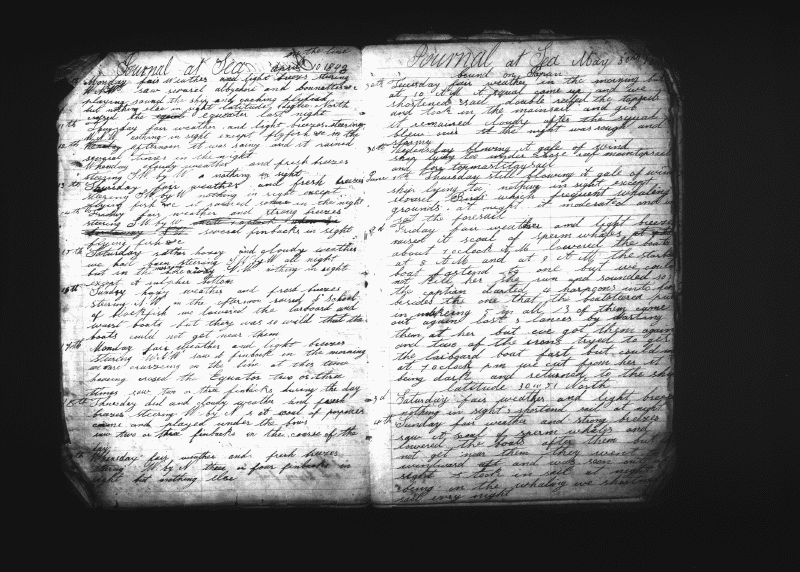 on the line
Journal at Sea April 10 1842
Monday fair weather and light breezes steering
W.b.W saw several albycore and bonnetters &c
playing round the ship and
but nothing else in sight latitude North
crossed the equator last night
11th Tuesday fair weather and light breezes steering
nothing in sight except flyfish &c in the
12th afternoon it was rainy and it rained
several times in the night
Wensday cloudy weather and fresh breezes
steering S.W by W nothing in sight
13th Thursday fair weather and fresh breezes
steering S.W by W nothing in sight except
flying fish &c it rained some in the night
14th Friday fair weather and strong breezes
steering S.W by W
several finbacks in sight
flying fish &c
15th Saturday rather hazey and cloudy weather
we had been steering S.W by W all night
but in the morning W.W nothing in sight
except
16th Sunday hazey weather and fresh breezes
steering S.W in the afternoon raised a school
of blackfish we lowered the larboard and
waist boats but they was so wild that the
boats could not get near them
17th Monday fair weather and light breezes
steering W.b.W saw a finback in the morning
we are cruissing on the line at this time
having crossed the Equator two or three
times saw two or three finbacks during the day
18th Thursday dul and cloudy weather and fresh
breezes steering W by N a school of porpoises
came and played under the bows
saw two or three finbacks in the course of the
day
Wensday fair weather and fresh breezes
steering W. by N three or four finbacks in
sight but nothing else
Journal at Sea May 30th
bound on Japan
30th Tuesday fair weather in the morning but
at 10 A.M a squal came up and we
shortened sail double reefed the topsails
and took in the mainsail and jib
it remained squally after the squall
blew over & the night was rough and
stormy
Wensday blowing a gale of wind
ship lying to under close reef maintopsail
and fore topmast staysail
June 1st Thursday still blowing a gale of wind
ship lying to nothing in sight except
several birds which frequent whaling
grounds at night it moderated and we
set the foresail
2d Friday fair weather and light breezes
raised a scool of sperm whales at
about 7 oclock A.M lowered the boats
at 8 A.M and at 9 A.M the starb
boat fastend to one but we could
not kill her she run and sounded so
the captain darted 2 harpoons into her
besides the one that the boatsteered put
in making 3 in all 2 of them came
out again lost 2 lances by darting
them at her but we got them again
and two of the irons tryed to get
the larboard boat fast but could not
at 7 oclock P.M we cut from her it
being dark and returned to the ship
latitude 30 .. 51 North
3d Saturday fair weather and light breezes
nothing in sight shortend sail at night
4th Sunday fair weather and strong breezes
saw a scool of sperm whales and
lowered the boats after them but
not get near them they went to
windward and was soon out of
sight & took in sail at night
being in the whaling we shorten
sail every night